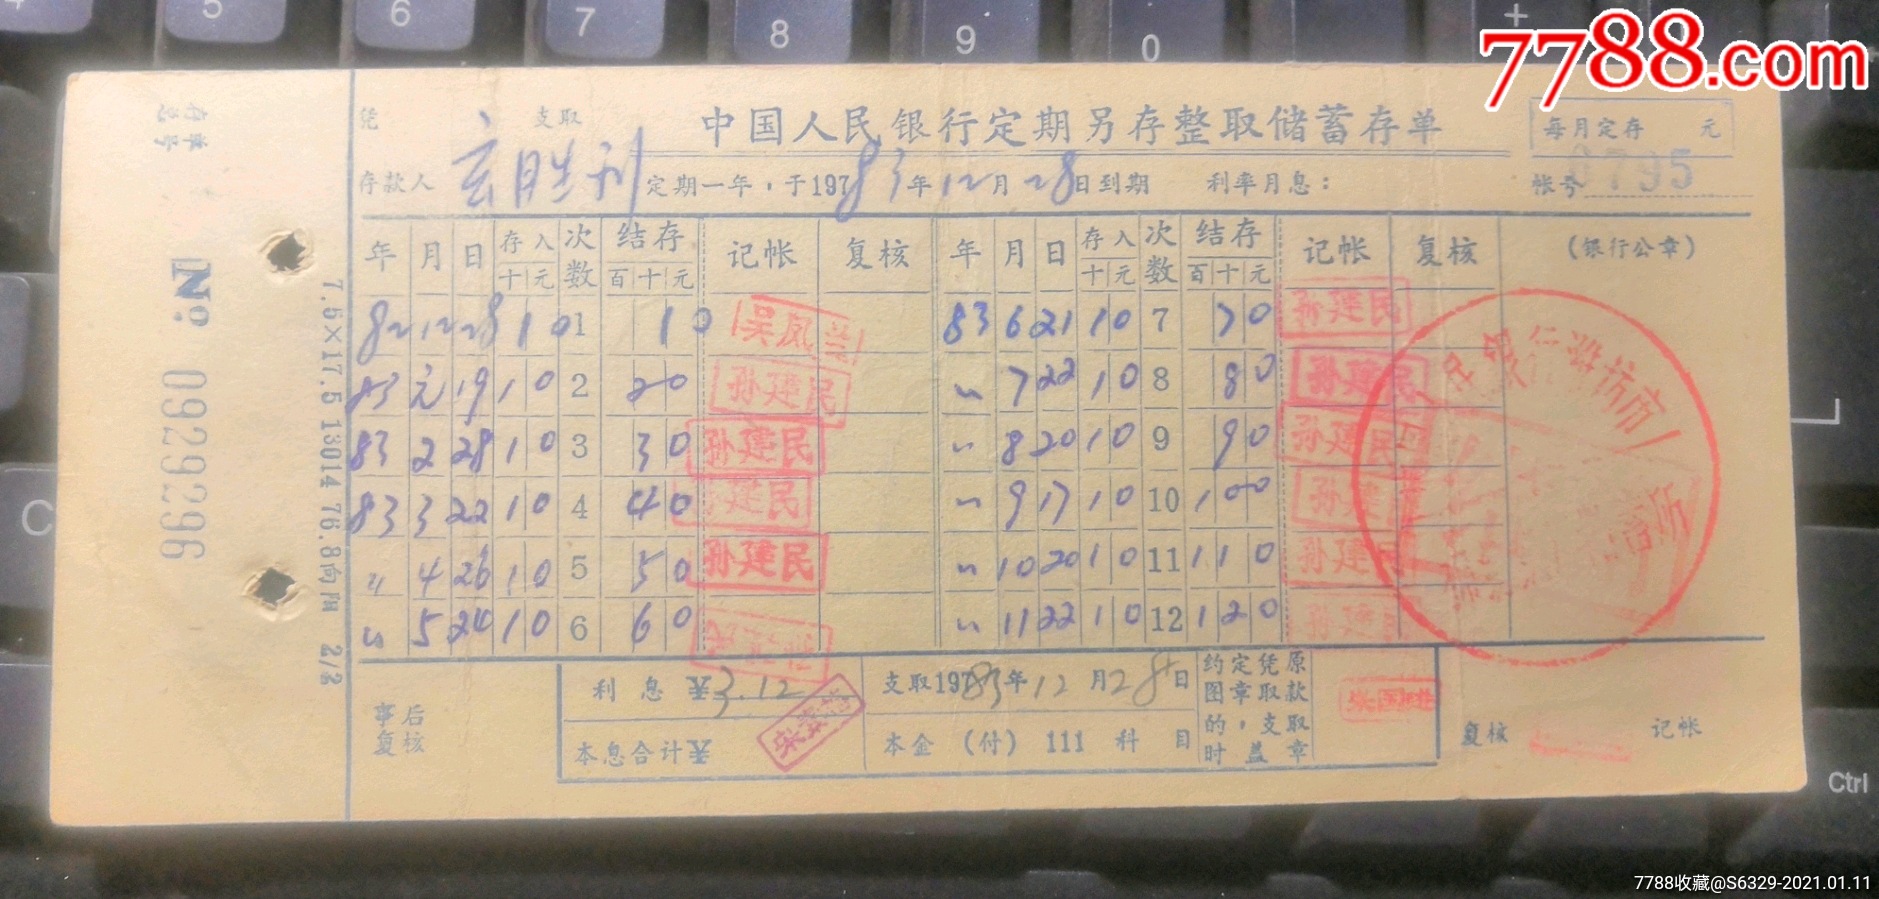 7788.com
4 5 6 7 8 9 0 +
存单号
凭 支取
中国人民银行定期另存整取储蓄存单
每月定存 元
存款人 定期一年，于19783年12月28日到期 利率月息：
帐号 0795
年 月 日 存入 十元 次数 结存 百十元 记帐 复核 年 月 日 存入 十元 次数 结存 百十元 记帐 复核 (银行公章)
82 12 28 10 1 10 吴凤兰 83 6 21 10 7 70 孙建民
83 元 19 10 2 20 孙建民 〃 7 22 10 8 80 孙建民
83 2 28 10 3 30 孙建民 〃 8 20 10 9 90 孙建民
83 3 22 10 4 40 孙建民 〃 9 17 10 10 100 孙建民
〃 4 26 10 5 50 孙建民 〃 10 20 10 11 110 孙建民
〃 5 24 10 6 60 〃 11 22 10 12 120 孙建民
№ 0929296
7.5×17.5 13014 76.8
利息 3.12
支取19783年12月28日
约定凭原图章取款的，支取时盖章
本息合计
本金 (付) 111 科目
事后复核
复核
记帐
C
Ctrl
7788收藏@S6329-2021.01.11